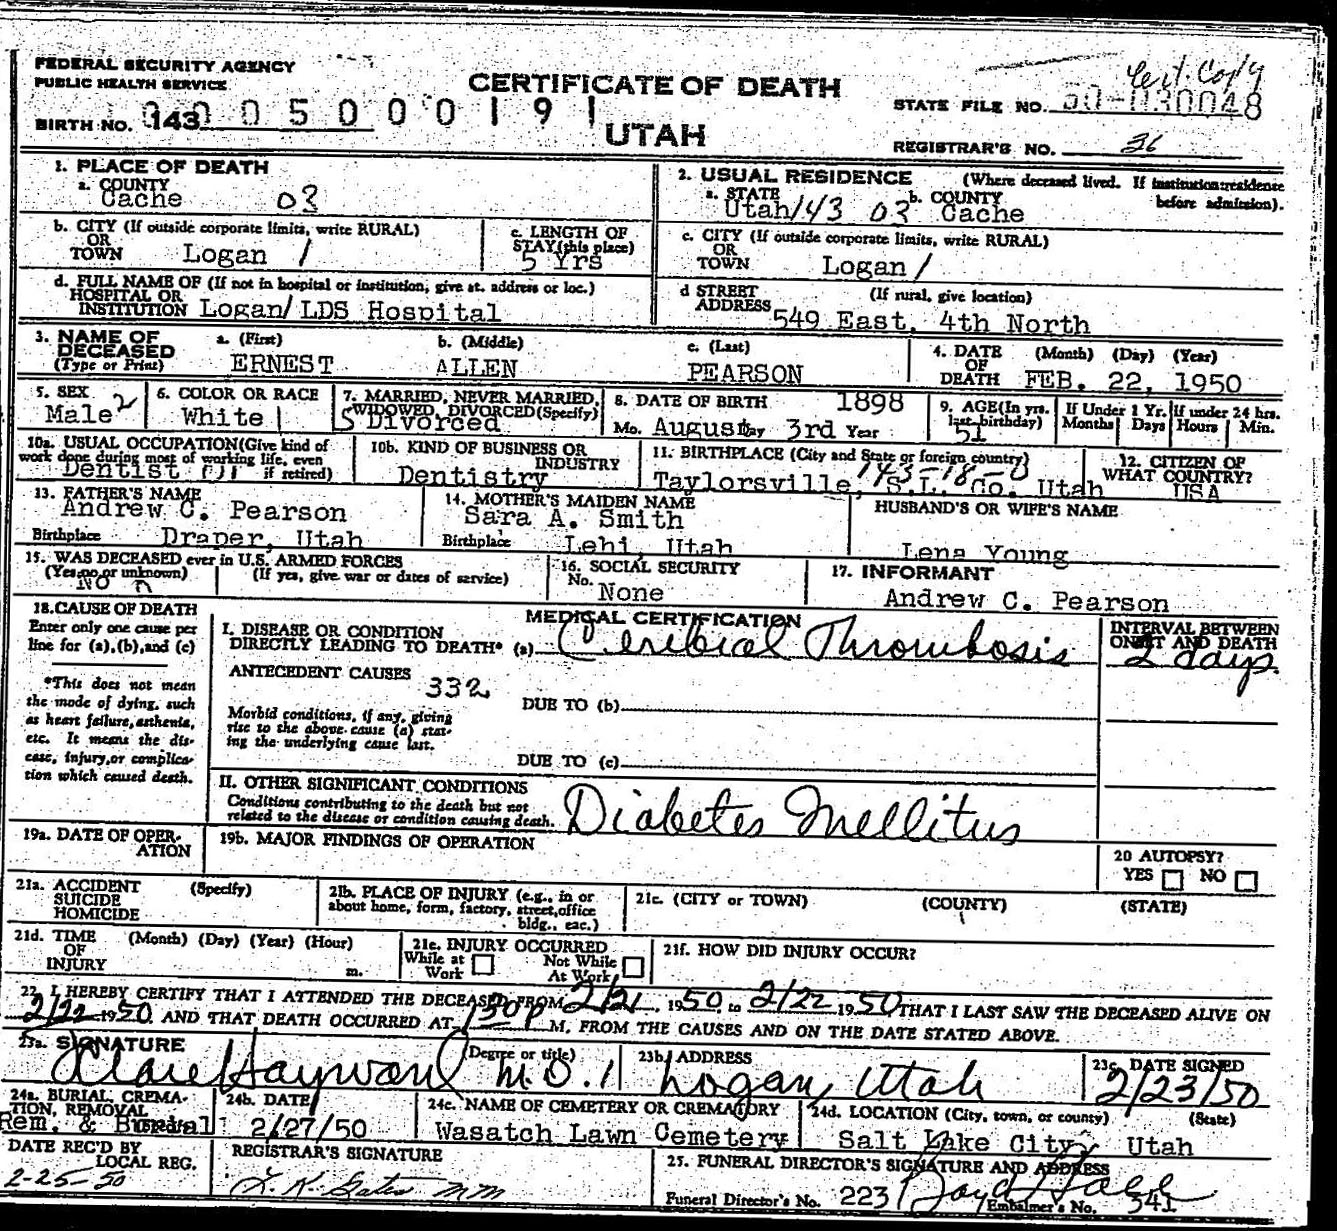 FEDERAL SECURITY AGENCY
PUBLIC HEALTH SERVICE
CERTIFICATE OF DEATH
Cert Copy
STATE FILE NO. 50-030048
BIRTH NO. 143 0 0 5 0 0 0 1 9 1
UTAH
REGISTRAR'S NO. 36
1. PLACE OF DEATH
a. COUNTY
Cache 03
2. USUAL RESIDENCE (Where deceased lived. If institution: residence before admission).
a. STATE b. COUNTY
Utah/43 03 Cache
b. CITY (If outside corporate limits, write RURAL)
OR
TOWN Logan /
c. LENGTH OF
STAY (this place)
5 Yrs
c. CITY (If outside corporate limits, write RURAL)
OR
TOWN Logan /
d. FULL NAME OF (If not in hospital or institution, give st. address or loc.)
HOSPITAL OR
INSTITUTION Logan/ LDS Hospital
d STREET (If rural, give location)
ADDRESS 549 East, 4th North
3. NAME OF DECEASED (Type or Print)
a. (First) b. (Middle) c. (Last)
ERNEST ALLEN PEARSON
4. DATE OF DEATH (Month) (Day) (Year)
FEB. 22, 1950
5. SEX
Male 2
6. COLOR OR RACE
White 1
7. MARRIED, NEVER MARRIED,
WIDOWED, DIVORCED (Specify)
5 Divorced
8. DATE OF BIRTH 1898
Mo. August Day 3rd Year
9. AGE (In yrs. last birthday)
51
If Under 1 Yr. Months Days
If under 24 hrs. Hours Min.
10a. USUAL OCCUPATION (Give kind of
work done during most of working life, even
if retired)
Dentist
10b. KIND OF BUSINESS OR
INDUSTRY
Dentistry
11. BIRTHPLACE (City and State or foreign country)
143-18-0
Taylorsville, S.L. Co. Utah
12. CITIZEN OF
WHAT COUNTRY?
USA
13. FATHER'S NAME
Andrew C. Pearson
Birthplace Draper, Utah
14. MOTHER'S MAIDEN NAME
Sara A. Smith
Birthplace Lehi, Utah
HUSBAND'S OR WIFE'S NAME
Lena Young
15. WAS DECEASED ever in U.S. ARMED FORCES
(Yes, no, or unknown) (If yes, give war or dates of service)
No
16. SOCIAL SECURITY
No. None
17. INFORMANT
Andrew C. Pearson
18. CAUSE OF DEATH
Enter only one cause per
line for (a), (b), and (c)
*This does not mean
the mode of dying, such
as heart failure, asthenia,
etc. It means the dis-
ease, injury, or complica-
tion which caused death.
MEDICAL CERTIFICATION
I. DISEASE OR CONDITION
DIRECTLY LEADING TO DEATH* (a) Cerebral Thrombosis
INTERVAL BETWEEN
ONSET AND DEATH
2 days.
ANTECEDENT CAUSES 332
DUE TO (b)
Morbid conditions, if any, giving
rise to the above cause (a) stat-
ing the underlying cause last.
DUE TO (c)
II. OTHER SIGNIFICANT CONDITIONS
Conditions contributing to the death but not
related to the disease or condition causing death.
Diabetes Mellitus
19a. DATE OF OPER-
ATION
19b. MAJOR FINDINGS OF OPERATION
20 AUTOPSY?
YES NO
21a. ACCIDENT (Specify)
SUICIDE
HOMICIDE
21b. PLACE OF INJURY (e.g., in or
about home, form, factory, street, office
bldg., eac.)
21c. (CITY or TOWN) (COUNTY) (STATE)
21d. TIME (Month) (Day) (Year) (Hour)
OF
INJURY m.
21e. INJURY OCCURRED
While at Work Not While At Work
21f. HOW DID INJURY OCCUR?
22. I HEREBY CERTIFY THAT I ATTENDED THE DECEASED FROM 2/21 1950, to 2/22 1950 THAT I LAST SAW THE DECEASED ALIVE ON
2/22 1950 AND THAT DEATH OCCURRED AT 130p M. FROM THE CAUSES AND ON THE DATE STATED ABOVE.
23a. SIGNATURE (Degree or title)
Hayward M.D. 1
23b. ADDRESS
Logan, Utah
23c. DATE SIGNED
2/23/50
24a. BURIAL, CREMA-
TION, REMOVAL
Rem. & Burial
24b. DATE
2/27/50
24c. NAME OF CEMETERY OR CREMATORY
Wasatch Lawn Cemetery
24d. LOCATION (City, town, or county) (State)
Salt Lake City, Utah
DATE REC'D BY
LOCAL REG.
2-25-50
REGISTRAR'S SIGNATURE
25. FUNERAL DIRECTOR'S SIGNATURE AND ADDRESS
Funeral Director's No. 223
Embalmer's No. 341